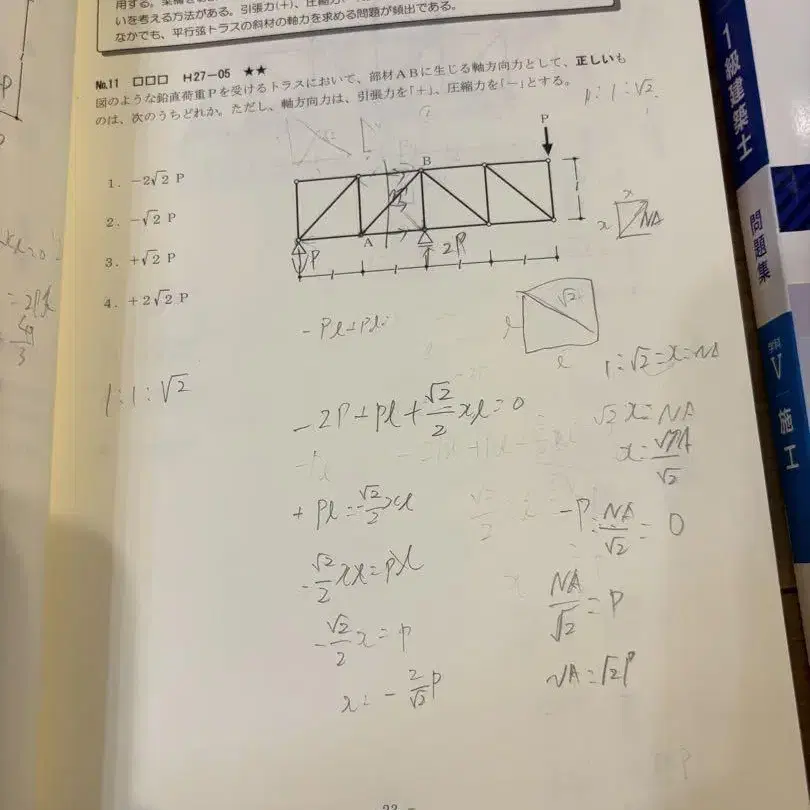 いを考える方法がある。引張力(+)、圧縮力
なかでも、平行弦トラスの斜材の軸力を求める問題が頻出である。
No.11 □□□ H27-05 ★★
図のような鉛直荷重Pを受けるトラスにおいて、部材ABに生じる軸方向力として、正しいも
のは、次のうちどれか。ただし、軸方向力は、引張力を「+」、圧縮力を「−」とする。
1:1:√2
P
B
1. −2√2 P
2. −√2 P
3. +√2 P
4. +2√2 P
A
P
2P
x
x
NA
−Pl+Pl
√2
l
l
1:1:√2
1:√2=x:NA
−2P+Pl+√2/2xl=0
√2x=NA
+Pl=-√2/2xl
−P
NA/√2=0
-√2/2xl=Pl
NA/√2=P
-√2/2x=P
x=-2/√2P
NA=√2P
1級建築士
問題集
V
施工
23